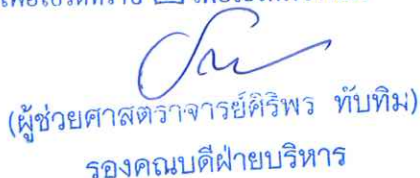 (ผู้ช่วยศาสตราจารย์ศิริพร ทับทิม)
รองคณบดีฝ่ายบริหาร